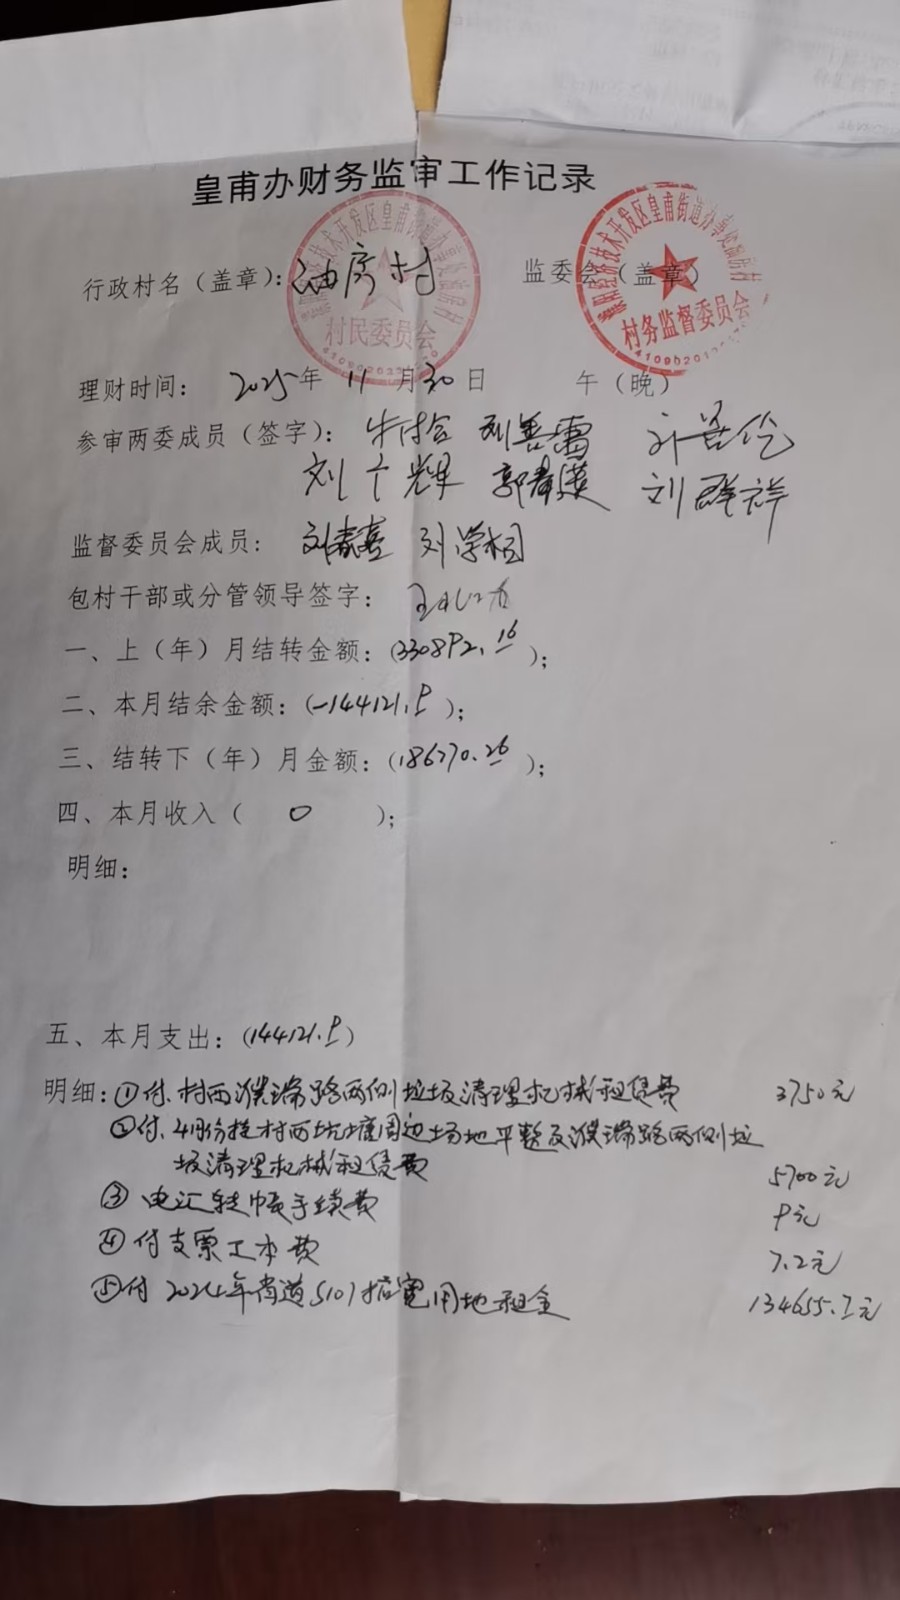 皇甫办财务监审工作记录
行政村名（盖章）：油房村 监委会（盖章）
村民委员会
村务监督委员会
理财时间： 2025年 11月30日 午（晚）
参审两委成员（签字）： 刘善雷
刘广辉 郭春英 刘群祥
监督委员会成员： 刘春喜 刘学相
包村干部或分管领导签字：
一、上（年）月结转金额：(330892.16 )；
二、本月结余金额：(-144121.9 )；
三、结转下（年）月金额：(186770.26 )；
四、本月收入（ 0 )；
明细：
五、本月支出：(144121.9)
明细：①付.村西濮瑞路两侧垃圾清理机械租赁费 3750元
②付.4月份挖村西坑塘周边场地平整及濮瑞路两侧垃
圾清理机械租赁费 5700元
③ 电汇转帐手续费 9元
④ 付支票工本费 7.2元
⑤付 2024年省道S101拓宽用地租金 134655.7元